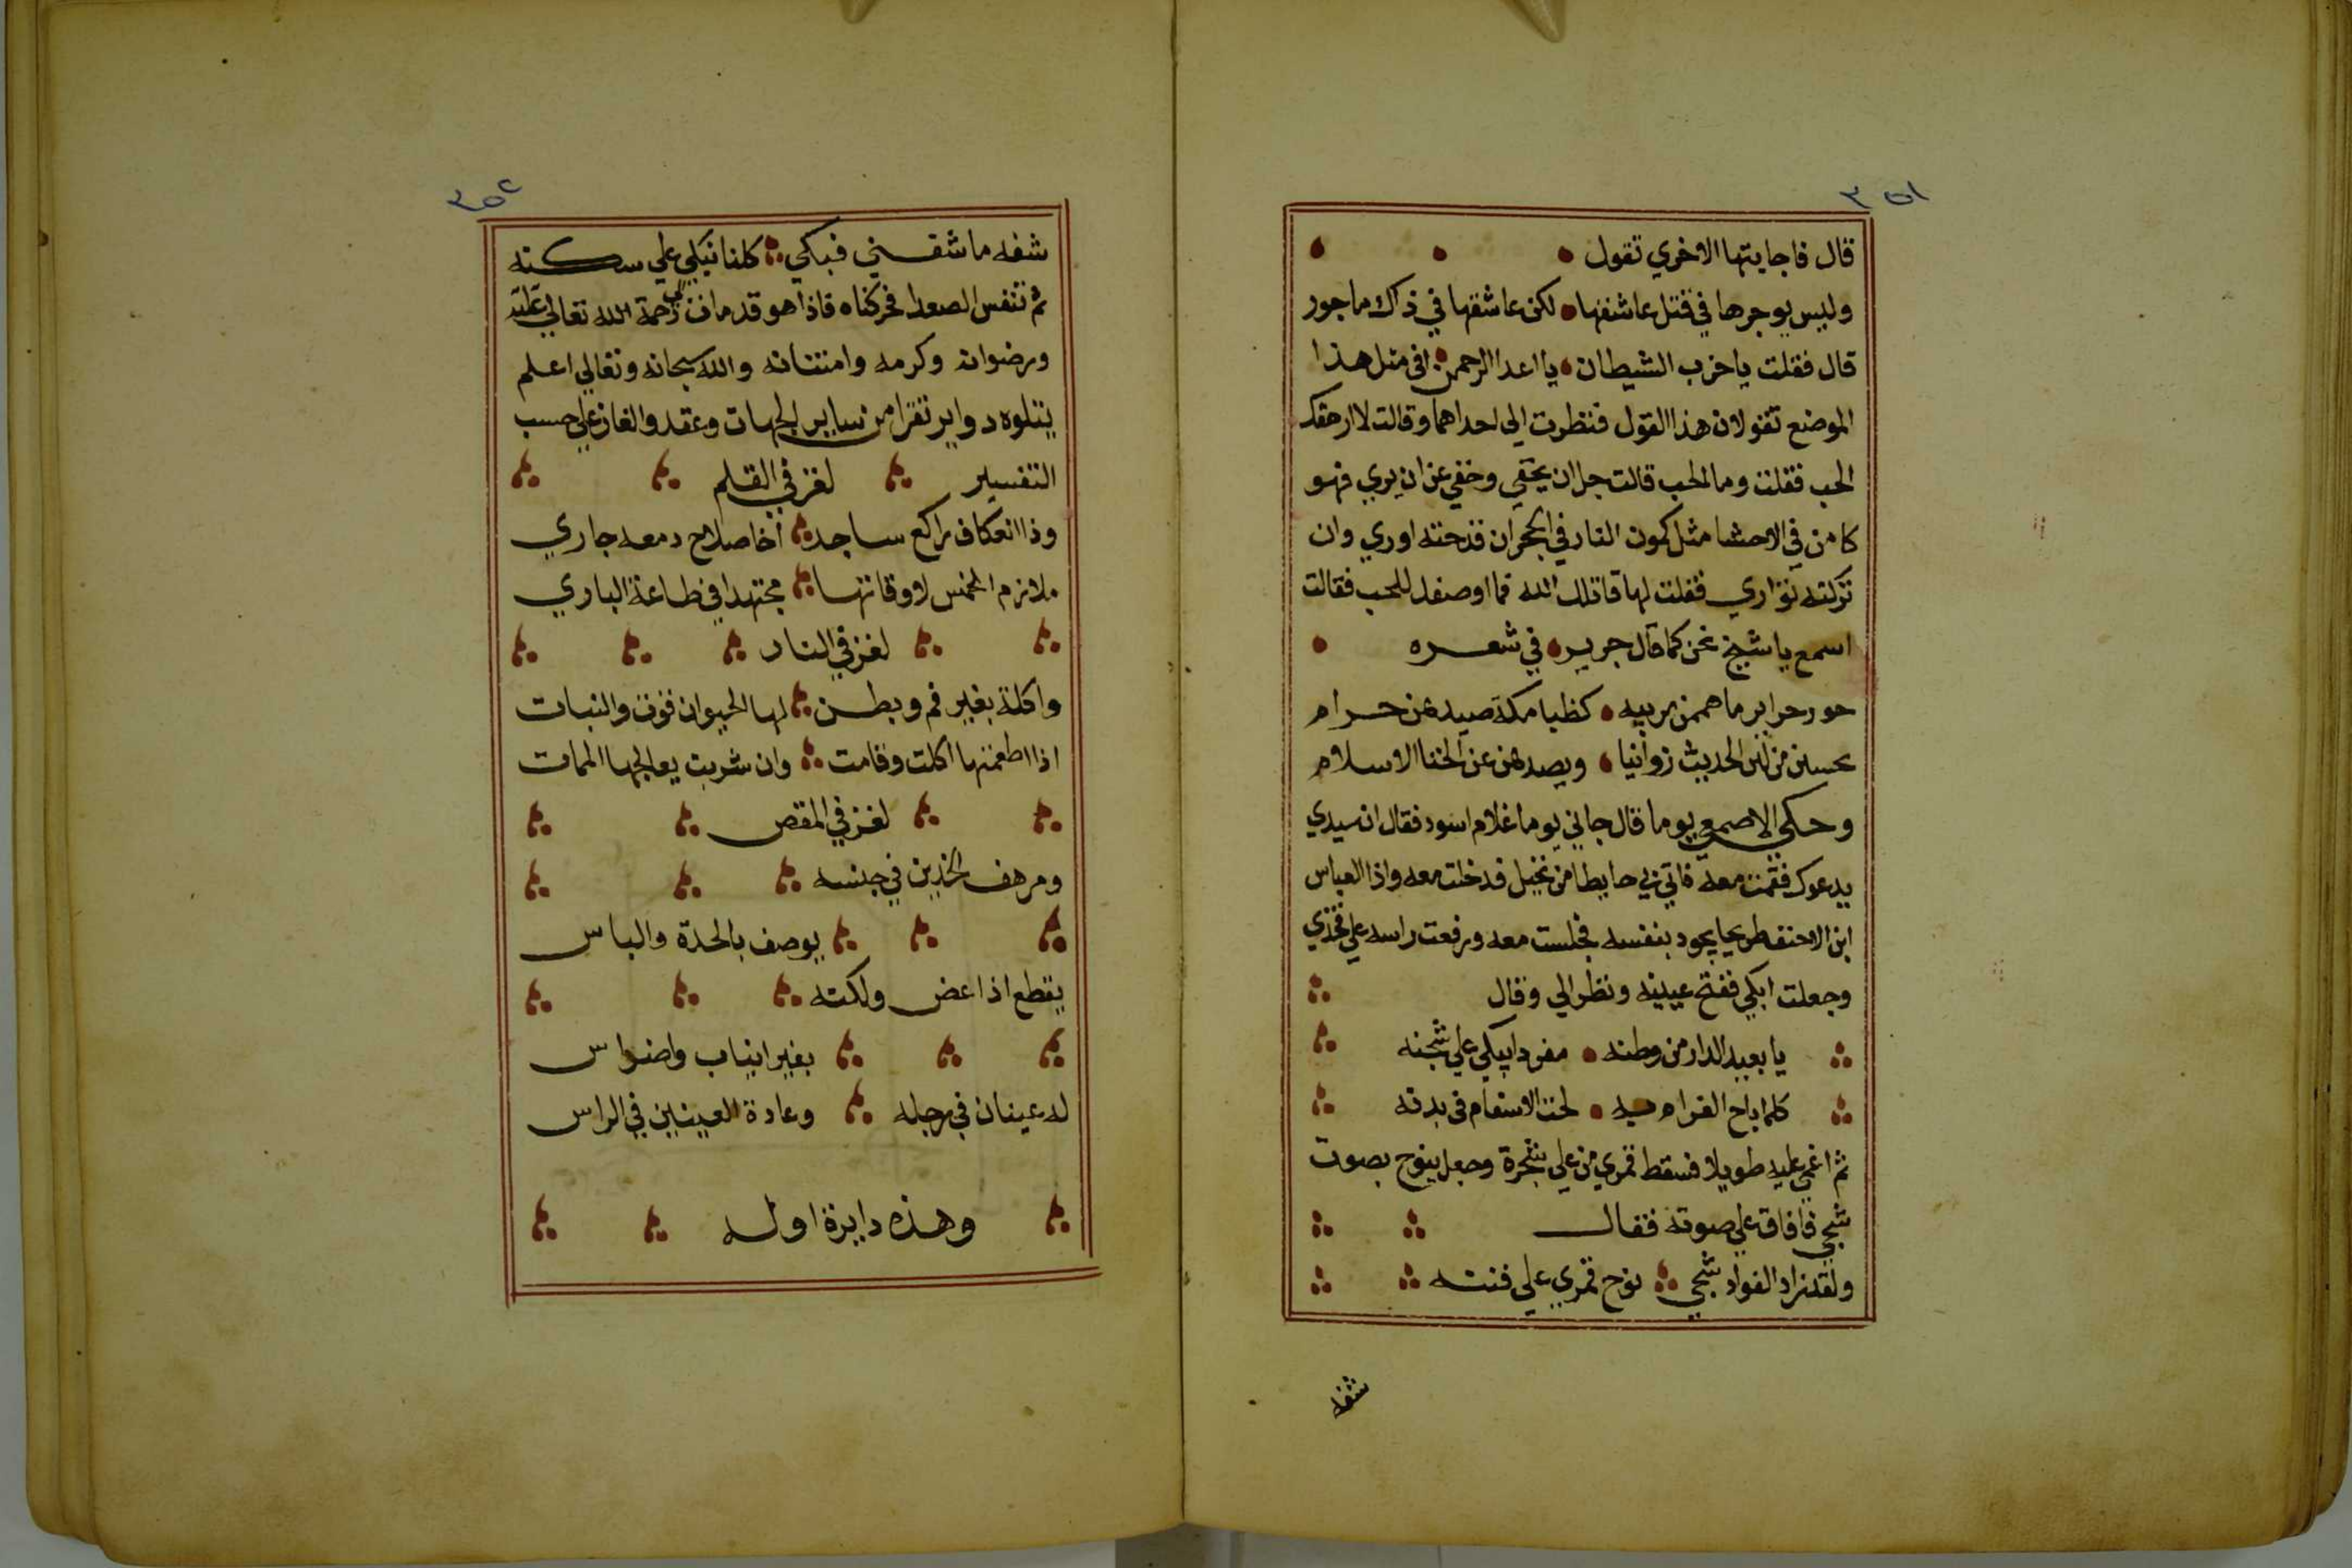 ٣٥١
قال فاجابتها الاخري تقول
وليس يوجرها في قتل عاشقها لكن عاشقها في ذاك ماجور
قال فقلت ياحزب الشيطان يا اعدا الرحمن افي مثل هذا
الموضع تقولان هذا القول فنظرت الي احداهما وقالت لا ارحقك
الحب فقلت وما الحب قالت جل ان يخفي وخفي عن ان يري فهو
كامن في الاحشا مثل كمون النار في الحجر ان قدحته اوري وان
تركته تواري فقلت لها قاتلك الله فما اوصفك للحب فقالت
اسمع يا شيخ نحن كما قال جرير في شعره
حور حراير ما هممن بريبه كظبا مكة صيدهن حرام
يحسبن من لين الحديث زوانيا ويصدهن عن الخنا الاسلام
وحكي الاصمعي يوما قال جاني يوما غلام اسود فقال ان سيدي
يدعوك فقمت معه فاتي بي حايطا من نخيل فدخلت معه واذا العباس
ابن الاحنف طريحا يجود بنفسه فجلست معه ورفعت راسه علي فخذي
وجعلت ابكي ففتح عينيه ونظر الي وقال
يا بعيد الدار من وطنه مفردا يبكي علي شجنه
كلما باح الغرام به لحت الاسقام في بدنه
ثم اغمي عليه طويلا فسقط قمري من علي شجرة وجعل ينوح بصوت
شجي فافاق علي صوته فقال
ولقد زاد الفواد شجي نوح قمري علي فننه
شفه
٣٥٢
شفه ما شفني فبكي كلنا نبكي علي سكنه
ثم تنفس الصعدا فحركناه فاذا هو قد مات الي رحمة الله تعالي عليه
ورضوانه وكرمه وامتنانه والله سبحانه وتعالي اعلم
يتلوه دواير تقرا من ساير الجهات وعقد والغاز علي حسب
التفسير لغز في القلم
وذا انعكاف راكع ساجد اخا صلاح دمعه جاري
ملازم الخمس لاوقاتها مجتهدا في طاعة الباري
لغز في النار
واكلة بغير فم وبطن لها الحيوان قوت والنبات
اذا اطعمتها اكلت وقامت وان شربت يعالجها الممات
لغز في المقص
ومرهف الخدين في جنسه
يوصف بالحدة والباس
يقطع اذا عض ولكنه
بغير انياب واضراس
له عينان في رجله وعادة العينين في الراس
وهذه دايرة اوله